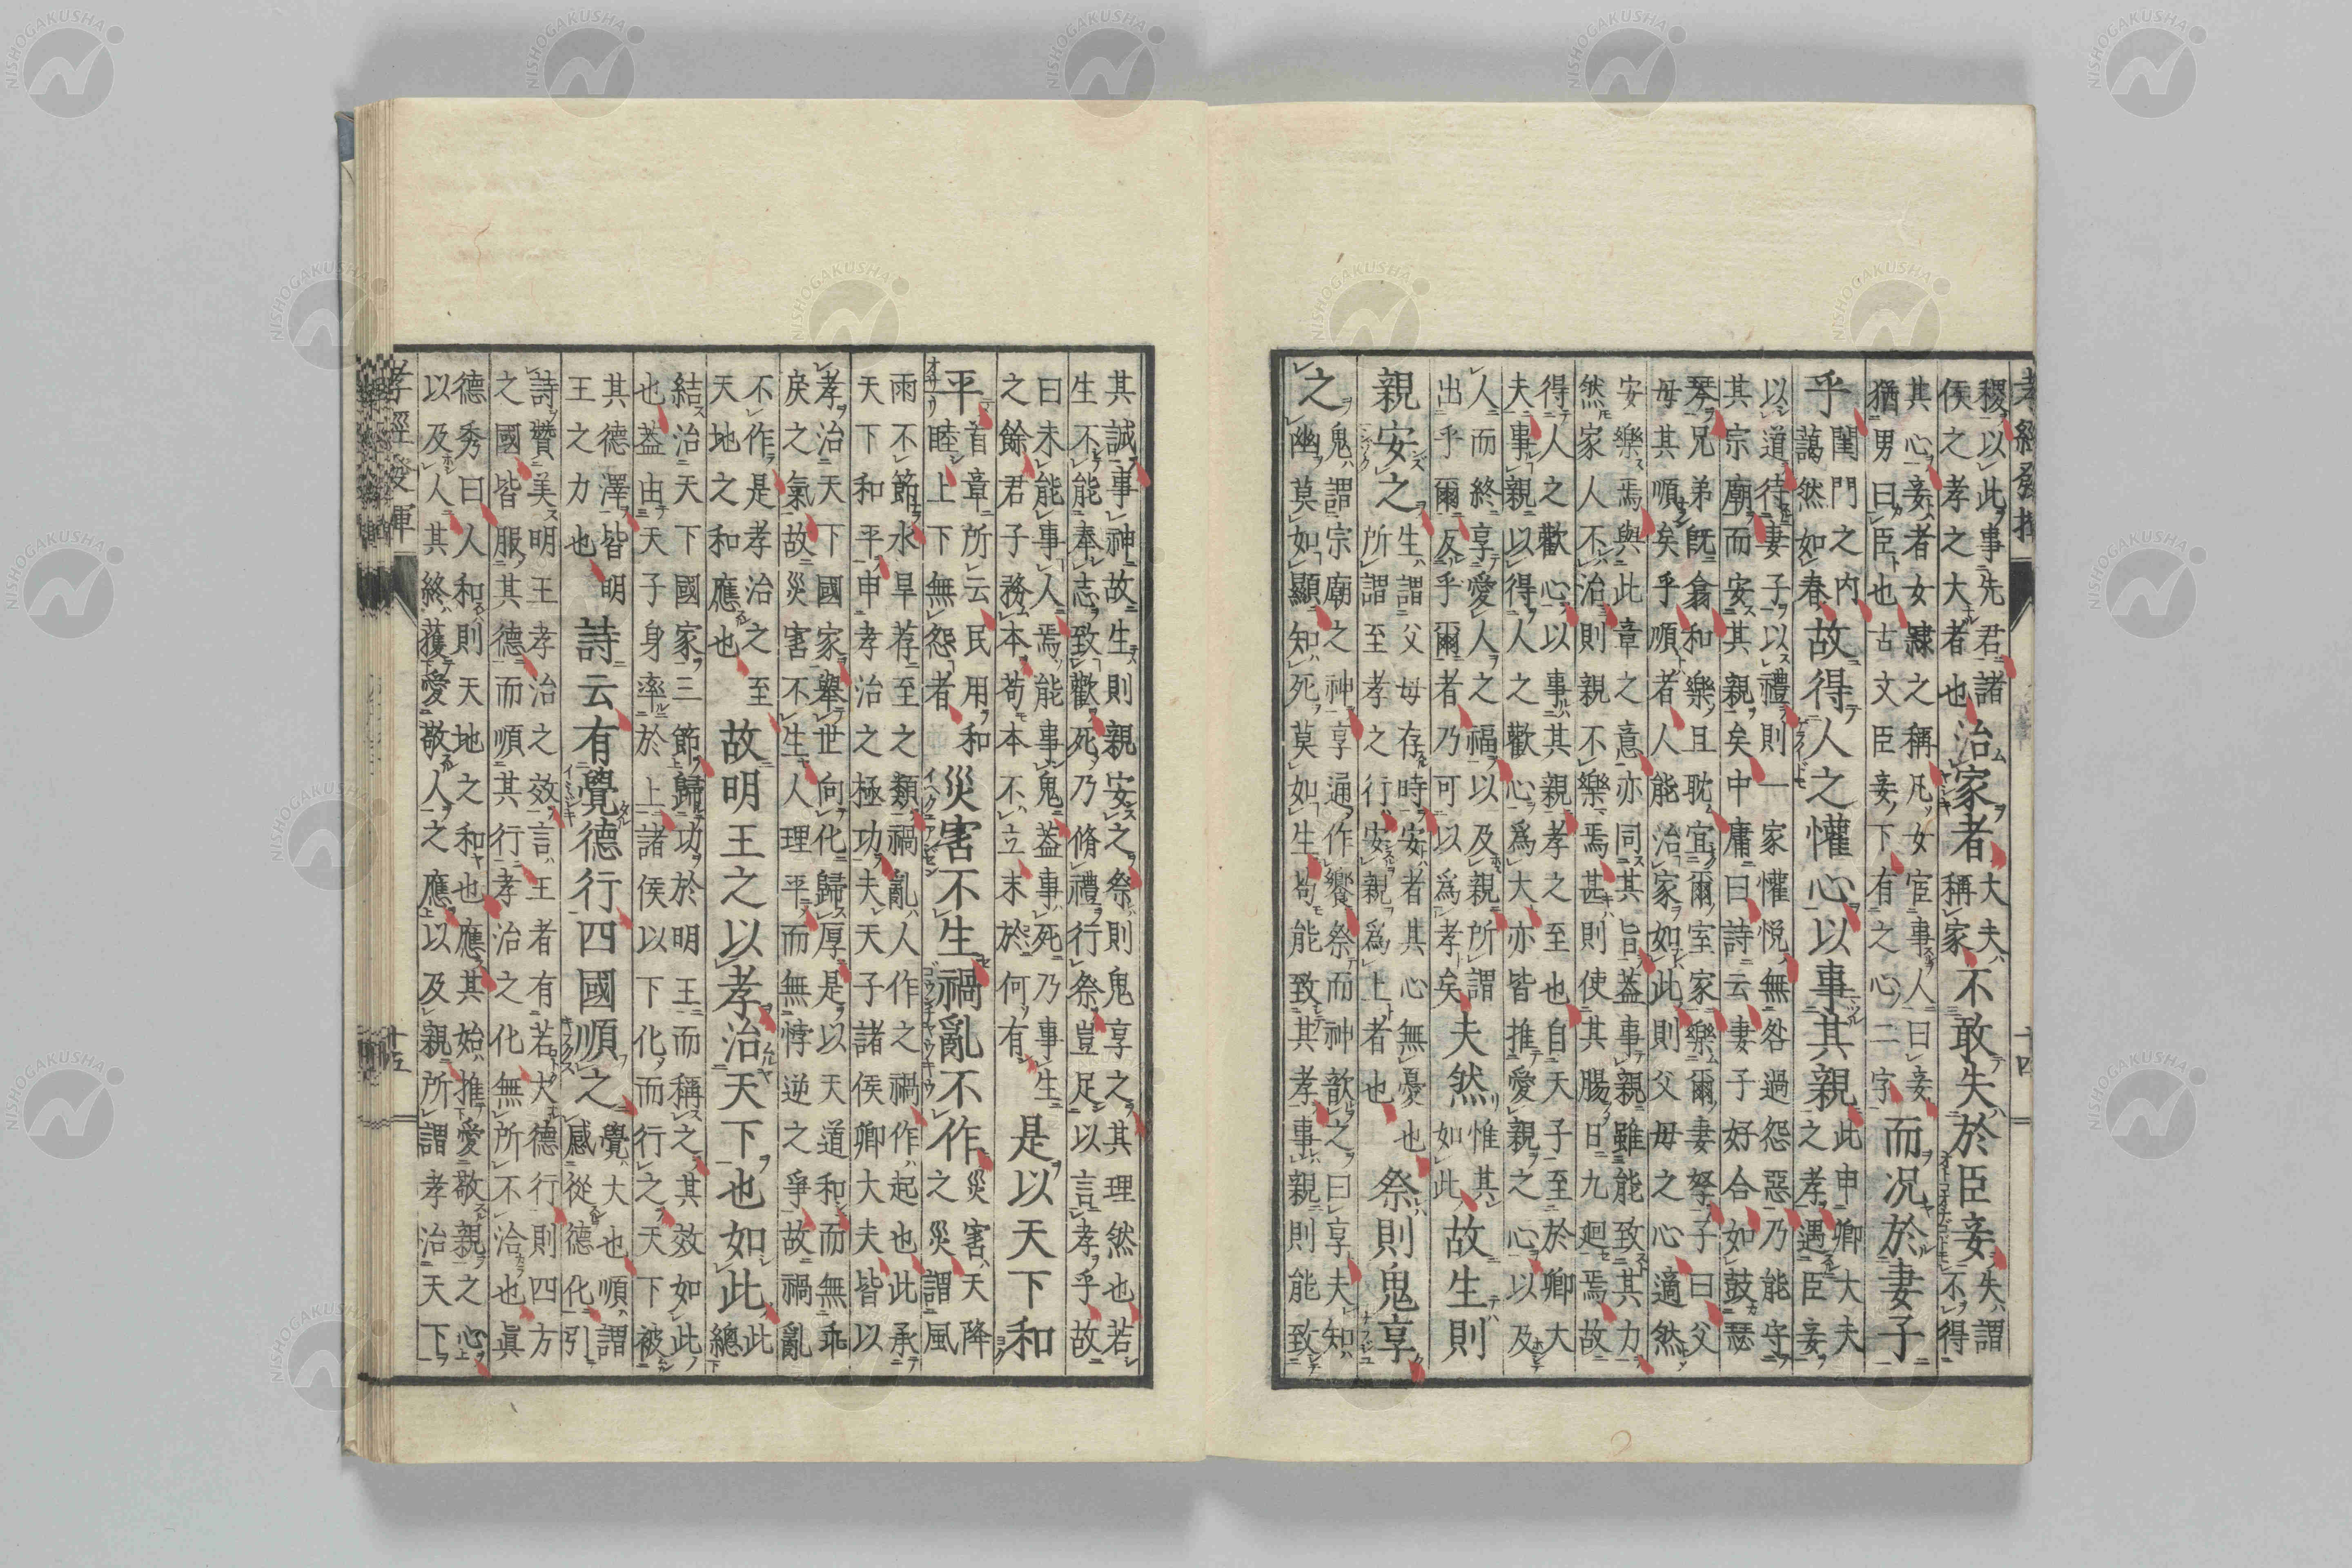 孝經發揮 十四
稷以此事先君諸
侯之孝之大者也
治家者
大夫
稱家
不敢失於臣妾
失謂
不得
其心妾者女隸之稱凡女宦事人曰妾
猶男曰臣也古文臣妾下有之心二字
而況於妻子
乎
閨門之内
藹然如春
故得人之懽心以事其親
此申卿大夫
之孝遇臣妾
以道待妻子以禮則一家懽悅無咎過怨惡乃能守
其宗廟而安其親矣中庸曰詩云妻子好合如鼓瑟
琴兄弟既翕和樂且耽宜爾室家樂爾妻孥子曰父
母其順矣乎順者人能治家如此則父母之心適然
安樂焉與此章之意亦同其旨蓋事親雖能致其力
然家人不治則親不樂焉甚則使其腸日九廻焉故
得人之歡心以事其親孝之至也自天子至於卿大
夫事親以得人之歡心爲大亦皆推愛親之心以及
人而終享愛人之福以及親所謂
出乎爾反乎爾者乃可以爲孝矣
夫然
惟其
如此
故生則
親安之
生謂父母存時安者其心無憂也
所謂至孝之行安親爲上者也
祭則鬼享
之
鬼謂宗廟之神享通作饗祭而神歆之曰享夫知
幽莫如顯知死莫如生苟能致其孝事親則能致
其誠事神故生則親安之祭則鬼享之其理然也若
生不能奉志致歡死乃脩禮行祭豈足以言孝乎故
曰未能事人焉能事鬼蓋事死乃事生
之餘君子務本苟本不立末於何有
是以天下和
平
首章所云民用和
睦上下無怨者
災害不生禍亂不作
災害天降
之災謂風
雨不節水旱荐至之類禍亂人作之禍作起也此承
天下和平申孝治之極功夫天子諸侯卿大夫皆以
孝治天下國家舉世向化歸厚是以天道和而無乖
戾之氣故災害不生人理平而無悖逆之爭故禍亂
不作是孝治之至
天地之和應也
故明王之以孝治天下也如此
此
總
結治天下國家三節歸功於明王而稱之其效如此
也蓋由天子身率於上諸侯以下化而行之天下被
其德澤皆明
王之力也
詩云有覺德行四國順之
覺大也順謂
感從德化引
詩贊美明王孝治之效言王者有若大德行則四方
之國皆服其德而順其行孝治之化無所不洽也眞
德秀曰人和則天地之和也應其始推愛敬親之心
以及人其終獲愛敬人之應以及親所謂孝治天下
孝經發揮 十五